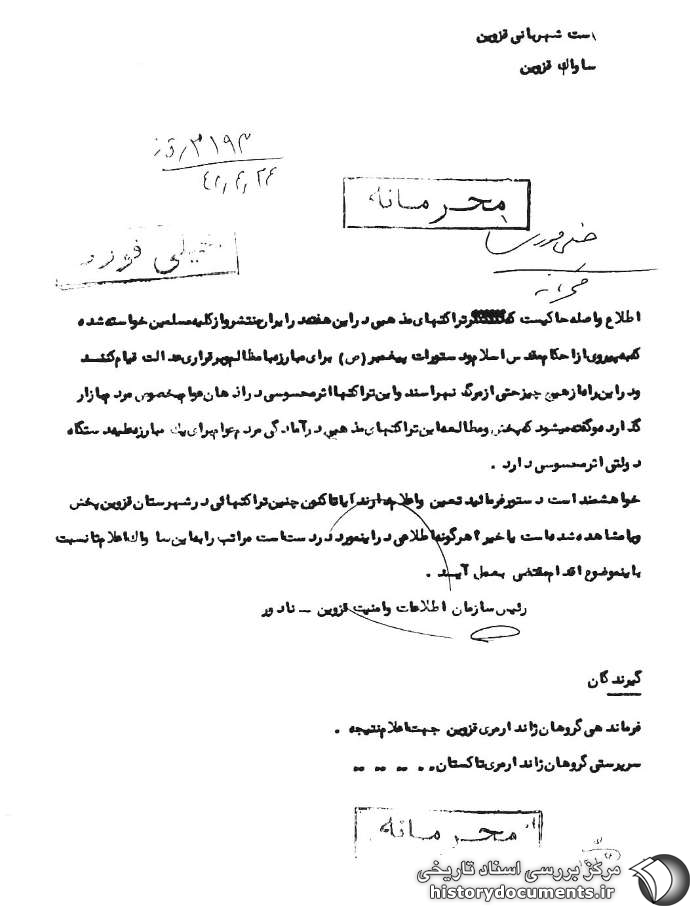 ریاست شهربانی قزوین
ساواک قزوین
۳۱۹۳/ق ز
۴۲/۴/۲۶
محرمانه
خیلی فوری
محرمانه
اطلاع واصله حاکیست که تراکتهای مذهبی در این هفته در ایران منتشر و از کلیه مسلمین خواسته شده
که به پیروی از احکام مقدس اسلام و دستورات پیغمبر (ص) برای مبارزه با مظالم و برقراری عدالت قیام کنند
و در این راه از هیچ چیز حتی از مرگ نهراسند و این تراکتها اثر محسوسی در اذهان عوام بخصوص مردم بازار
گذارده و گفته میشود که پخش و مطالعه این تراکتهای مذهبی در آمادگی مردم عوام برای یک مبارزه علیه دستگاه
دولتی اثر محسوسی دارد .
خواهشمند است دستور فرمائید تعیین و اعلام دارند آیا تاکنون چنین تراکتهائی در شهرستان قزوین پخش
و یا مشاهده شده است یا خیر ؟ هرگونه اطلاعی در اینمورد در دست است مراتب را به این ساواک اعلام تا نسبت
باینموضوع اقدام مقتضی بعمل آید .
رئیس سازمان اطلاعات و امنیت قزوین – نادور
گیرندگان
فرماندهی گروهان ژاندارمری قزوین جهت اعلام نتیجه .
سرپرستی گروهان ژاندارمری تاکستان ,, ,, ,, ,,
محرمانه
مرکز بررسی اسناد تاریخی
historydocuments.ir